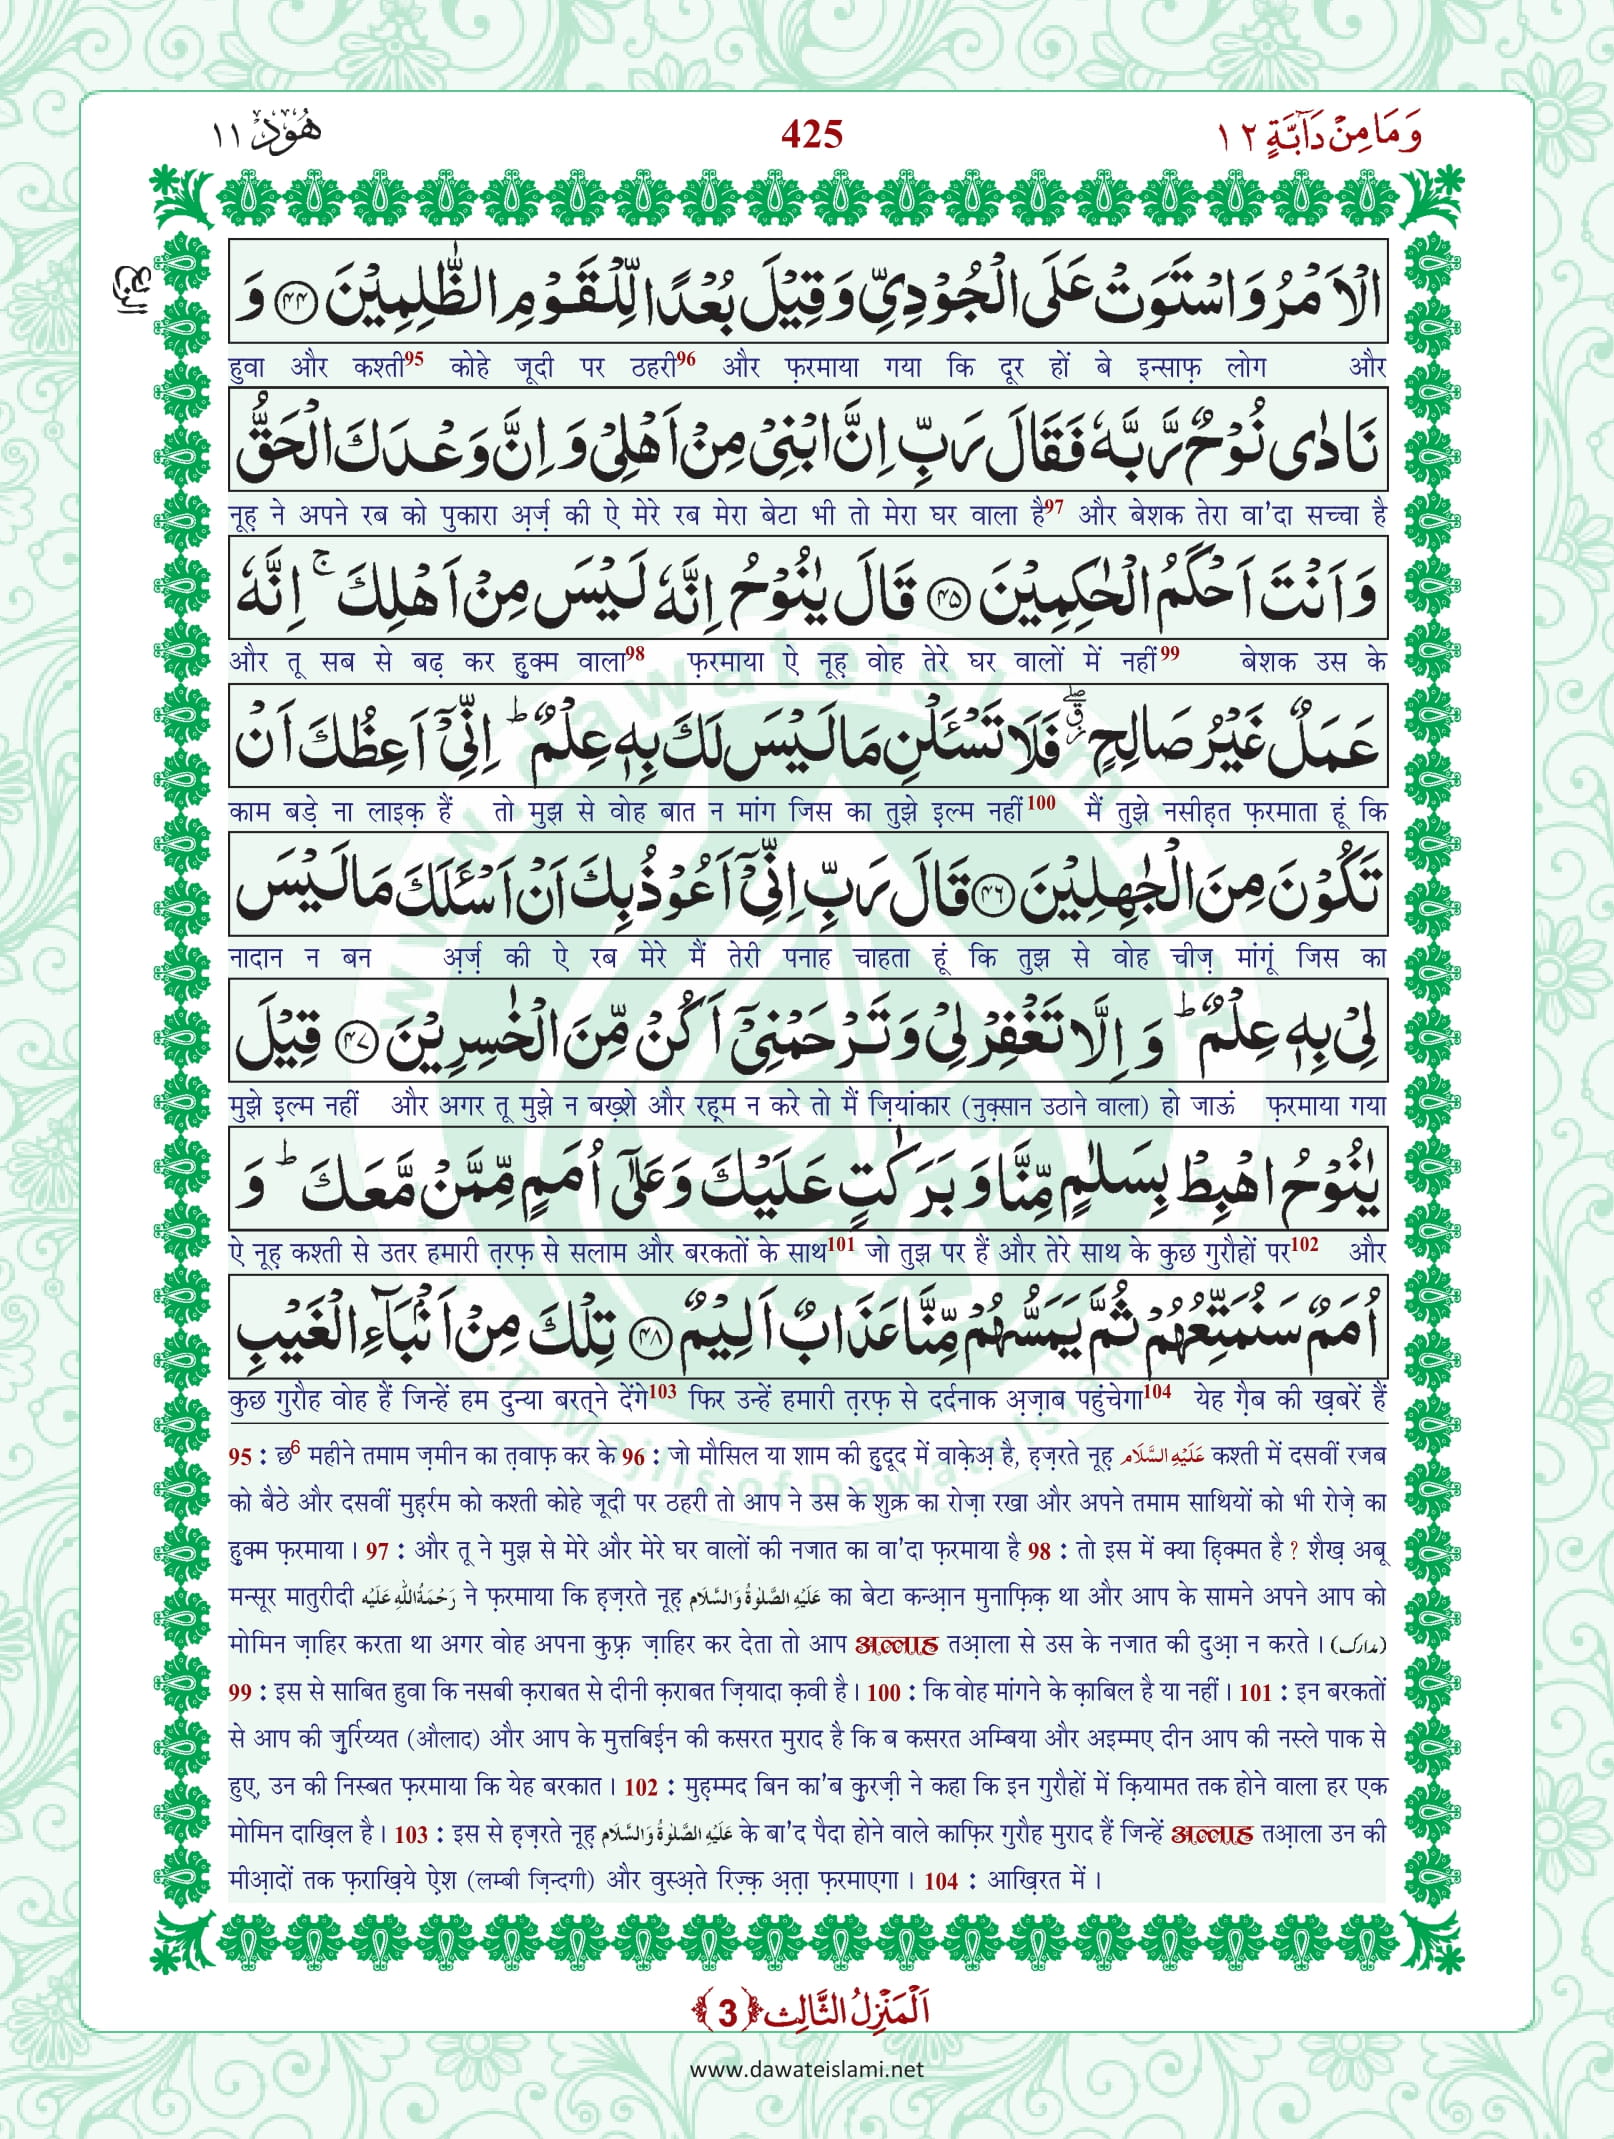 وَمَا مِنْ دَآبَّةٍ ١٢
425
هُوْد ١١
الربع
الْاَمْرُ وَاسْتَوَتْ عَلَى الْجُوْدِیِّ وَقِیْلَ بُعْدًا لِّلْقَوْمِ الظّٰلِمِیْنَ ﴿۴۴﴾ وَ
हुवा और कश्ती95 कोहे जूदी पर ठहरी96 और फ़रमाया गया कि दूर हों बे इन्साफ़ लोग और
نَادٰى نُوْحٌ رَّبَّهٗ فَقَالَ رَبِّ اِنَّ ابْنِیْ مِنْ اَهْلِیْ وَ اِنَّ وَعْدَكَ الْحَقُّ
नूह़ ने अपने रब को पुकारा अ़र्ज़ की ऐ मेरे रब मेरा बेटा भी तो मेरा घर वाला है97 और बेशक तेरा वा'दा सच्चा है
وَ اَنْتَ اَحْكَمُ الْحٰكِمِیْنَ ﴿۴۵﴾ قَالَ یٰنُوْحُ اِنَّهٗ لَیْسَ مِنْ اَهْلِكَ ۚ اِنَّهٗ
और तू सब से बढ़ कर हु़क्म वाला98 फ़रमाया ऐ नूह़ वोह तेरे घर वालों में नहीं99 बेशक उस के
عَمَلٌ غَیْرُ صَالِحٍ ۖ٘ۗ فَلَا تَسْـَٔلْنِ مَا لَیْسَ لَكَ بِهٖ عِلْمٌ ؕ اِنِّیْۤ اَعِظُكَ اَنْ
काम बड़े ना लाइक़ हैं तो मुझ से वोह बात न मांग जिस का तुझे इ़ल्म नहीं100 मैं तुझे नसीह़त फ़रमाता हूं कि
تَكُوْنَ مِنَ الْجٰهِلِیْنَ ﴿۴۶﴾ قَالَ رَبِّ اِنِّیْۤ اَعُوْذُ بِكَ اَنْ اَسْـَٔلَكَ مَا لَیْسَ
नादान न बन अ़र्ज़ की ऐ रब मेरे मैं तेरी पनाह चाहता हूं कि तुझ से वोह चीज़ मांगूं जिस का
لِیْ بِهٖ عِلْمٌ ؕ وَ اِلَّا تَغْفِرْ لِیْ وَ تَرْحَمْنِیْۤ اَكُنْ مِّنَ الْخٰسِرِیْنَ ﴿۴۷﴾ قِیْلَ
मुझे इ़ल्म नहीं और अगर तू मुझे न बख़्शे और रह़्म न करे तो मैं ज़ियांकार (नुक़्सान उठाने वाला) हो जाऊं फ़रमाया गया
یٰنُوْحُ اهْبِطْ بِسَلٰمٍ مِّنَّا وَ بَرَكٰتٍ عَلَیْكَ وَ عَلٰۤى اُمَمٍ مِّمَّنْ مَّعَكَ ؕ وَ
ऐ नूह़ कश्ती से उतर हमारी त़रफ़ से सलाम और बरकतों के साथ101 जो तुझ पर हैं और तेरे साथ के कुछ गुरौहों पर102 और
اُمَمٌ سَنُمَتِّعُهُمْ ثُمَّ یَمَسُّهُمْ مِّنَّا عَذَابٌ اَلِیْمٌ ﴿۴۸﴾ تِلْكَ مِنْ اَنْۢبَآءِ الْغَیْبِ
कुछ गुरौह वोह हैं जिन्हें हम दुन्या बरत्ने देंगे103 फिर उन्हें हमारी त़रफ़ से दर्दनाक अ़ज़ाब पहुंचेगा104 येह ग़ैब की ख़बरें हैं
95 : छ6 महीने तमाम ज़मीन का त़वाफ़ कर के 96 : जो मौसिल या शाम की हु़दूद में वाक़ेअ़ है, ह़ज़रते नूह़ عَلَيْهِ السَّلَام कश्ती में दसवीं रजब
को बैठे और दसवीं मुह़र्रम को कश्ती कोहे जूदी पर ठहरी तो आप ने उस के शुक्र का रोज़ा रखा और अपने तमाम साथियों को भी रोज़े का
हु़क्म फ़रमाया। 97 : और तू ने मुझ से मेरे और मेरे घर वालों की नजात का वा'दा फ़रमाया है 98 : तो इस में क्या ह़िक्मत है ? शैख़ अबू
मन्सूर मातुरीदी رَحْمَةُ اللّٰهِ عَلَيْه ने फ़रमाया कि ह़ज़रते नूह़ عَلَيْهِ الصَّلٰوةُ وَالسَّلَام का बेटा कन्आ़न मुनाफ़िक़ था और आप के सामने अपने आप को
मोमिन ज़ाहिर करता था अगर वोह अपना कुफ़्र ज़ाहिर कर देता तो आप अल्लाह तआ़ला से उस के नजात की दुआ़ न करते। (مدارک)
99 : इस से साबित हुवा कि नसबी क़राबत से दीनी क़राबत ज़ियादा क़वी है। 100 : कि वोह मांगने के क़ाबिल है या नहीं। 101 : इन बरकतों
से आप की ज़ुर्रिय्यत (औलाद) और आप के मुत्तबिई़न की कसरत मुराद है कि ब कसरत अम्बिया और अइम्मए दीन आप की नस्ले पाक से
हुए, उन की निस्बत फ़रमाया कि येह बरकात। 102 : मुह़म्मद बिन का'ब कुरज़ी ने कहा कि इन गुरौहों में क़ियामत तक होने वाला हर एक
मोमिन दाख़िल है। 103 : इस से ह़ज़रते नूह़ عَلَيْهِ الصَّلٰوةُ وَالسَّلَام के बा'द पैदा होने वाले काफ़िर गुरौह मुराद हैं जिन्हें अल्लाह तआ़ला उन की
मीआ़दों तक फ़राख़िये ऐ़श (लम्बी ज़िन्दगी) और वुस्अ़ते रिज़्क़ अ़त़ा फ़रमाएगा। 104 : आख़िरत में।
اَلْمَنْزِلُ الثَّالِث ﴿3﴾
www.dawateislami.net